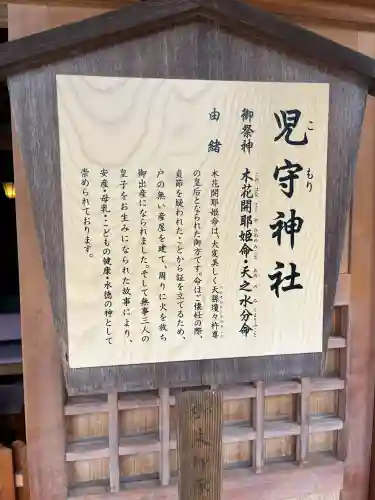 児守神社
こもり
御祭神　木花開耶姫命・天之水分命
由緒
木花開耶姫命は、大変美しく天孫瓊々杵尊
の皇后となられた御方です。命はご懐妊の際、
貞節を疑われたことから証を立てるため、
戸の無い産屋を建て、周りに火を放ち
御出産になられました。そして無事三人の
皇子をお生みになられた故事により、
安産・母乳・こどもの健康・水徳の神として
崇められております。